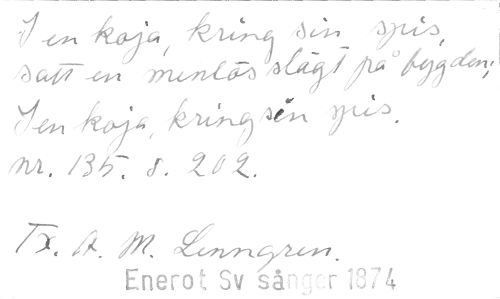 I en koja, kring sin spis,
satt en menlös slägt på bygden;
I en koja, kring sin spis.
nr. 135. s. 202.
Tx. A. M. Lenngren.
Enerot Sv sånger 1874